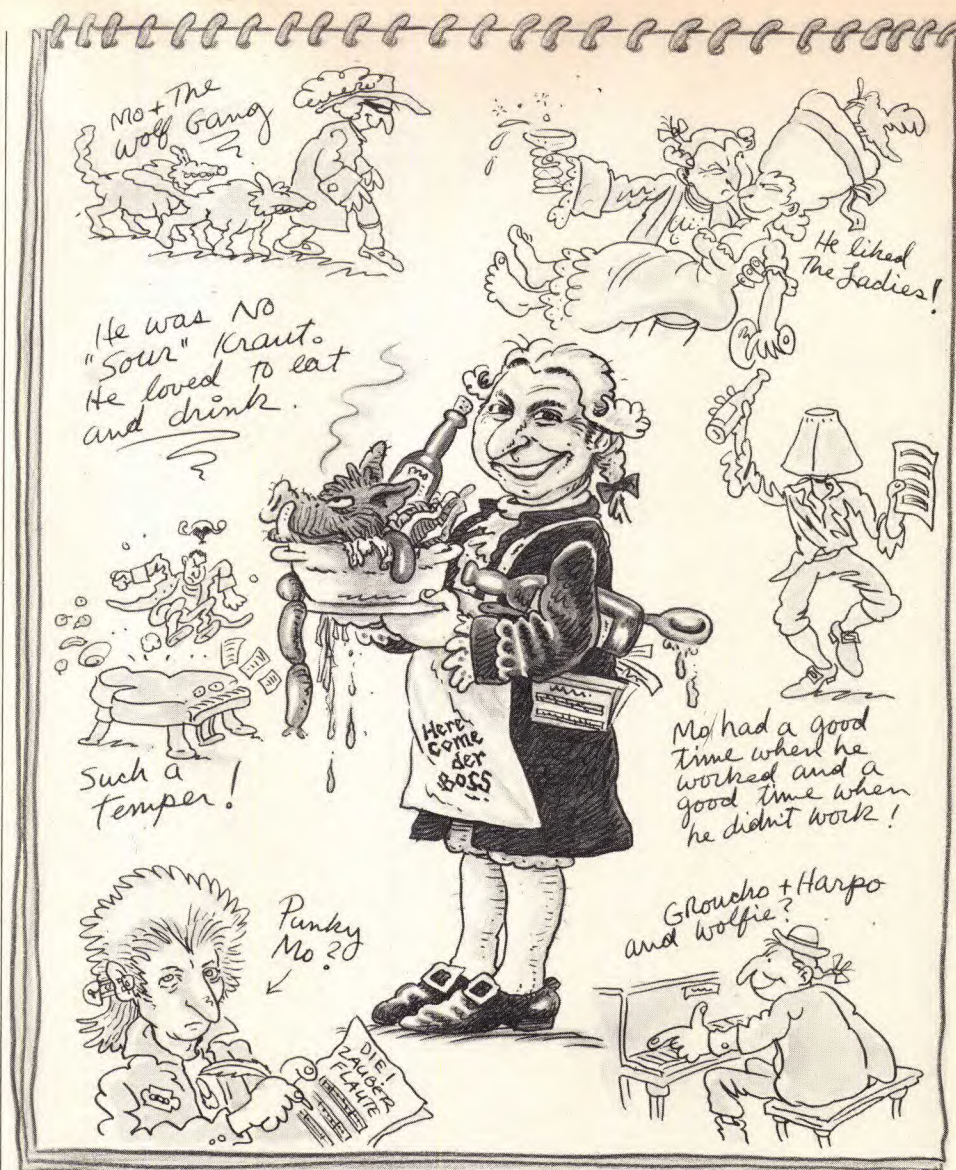 Mo + The
Wolf Gang
He liked
The Ladies!
He was No
"Sour" Kraut.
He loved to eat
and drink.
Here
Come
der
BOSS
Such a
Temper!
Mo had a good
time when he
worked and a
good time when
he didn't work!
Punky
Mo?
DIE!
ZAUBER
FLAUTE
GRoucho + Harpo
and wolfie?